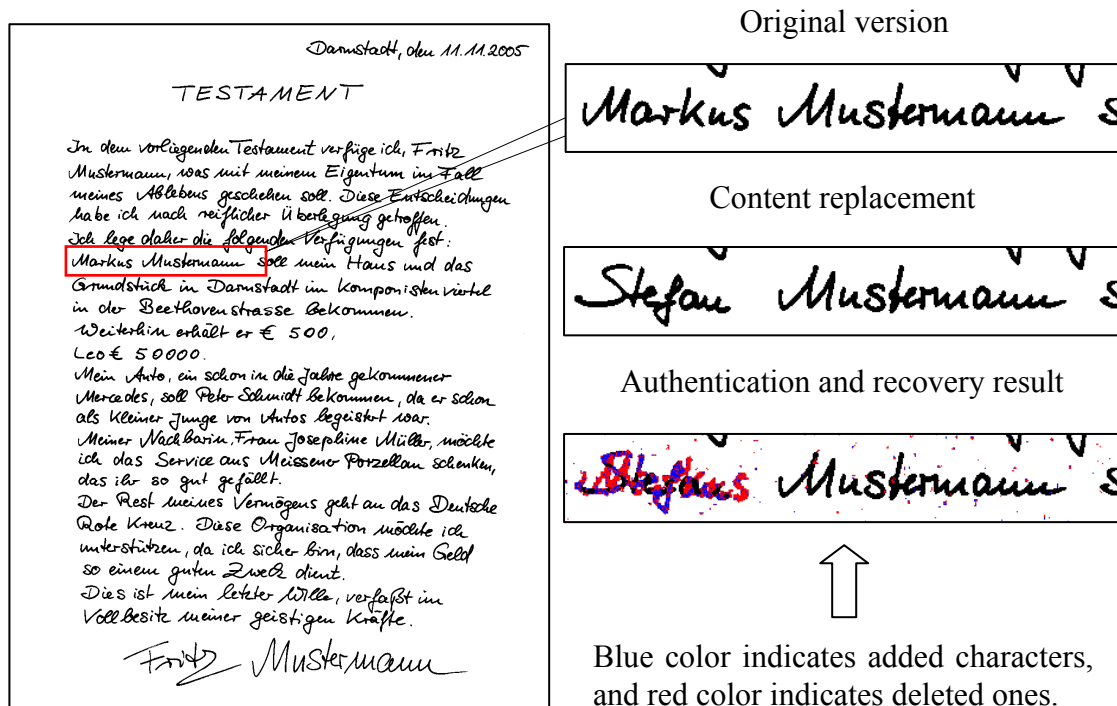 Darmstadt, den 11.11.2005
TESTAMENT
In dem vorliegenden Testament verfüge ich, Fritz
Mustermann, was mit meinem Eigentum im Fall
meines Ablebens geschehen soll. Diese Entscheidungen
habe ich nach reiflicher Überlegung getroffen.
Ich lege daher die folgenden Verfügungen fest:
Markus Mustermann soll mein Haus und das
Grundstück in Darmstadt im Komponistenviertel
in der Beethovenstrasse bekommen.
Weiterhin erhält er € 500,
Leo € 50000.
Mein Auto, ein schon in die Jahre gekommener
Mercedes, soll Peter Schmidt bekommen, da er schon
als kleiner Junge von Autos begeistert war.
Meiner Nachbarin, Frau Josephine Müller, möchte
ich das Service aus Meissener Porzellan schenken,
das ihr so gut gefällt.
Der Rest meines Vermögens geht an das Deutsche
Rote Kreuz. Diese Organisation möchte ich
unterstützen, da ich sicher bin, dass mein Geld
so einem guten Zweck dient.
Dies ist mein letzter Wille, verfaßt im
Vollbesitz meiner geistigen Kräfte.
Fritz Mustermann
Original version
Markus Mustermann s
Content replacement
Stefan Mustermann s
Authentication and recovery result
Mustermann s
Blue color indicates added characters,
and red color indicates deleted ones.